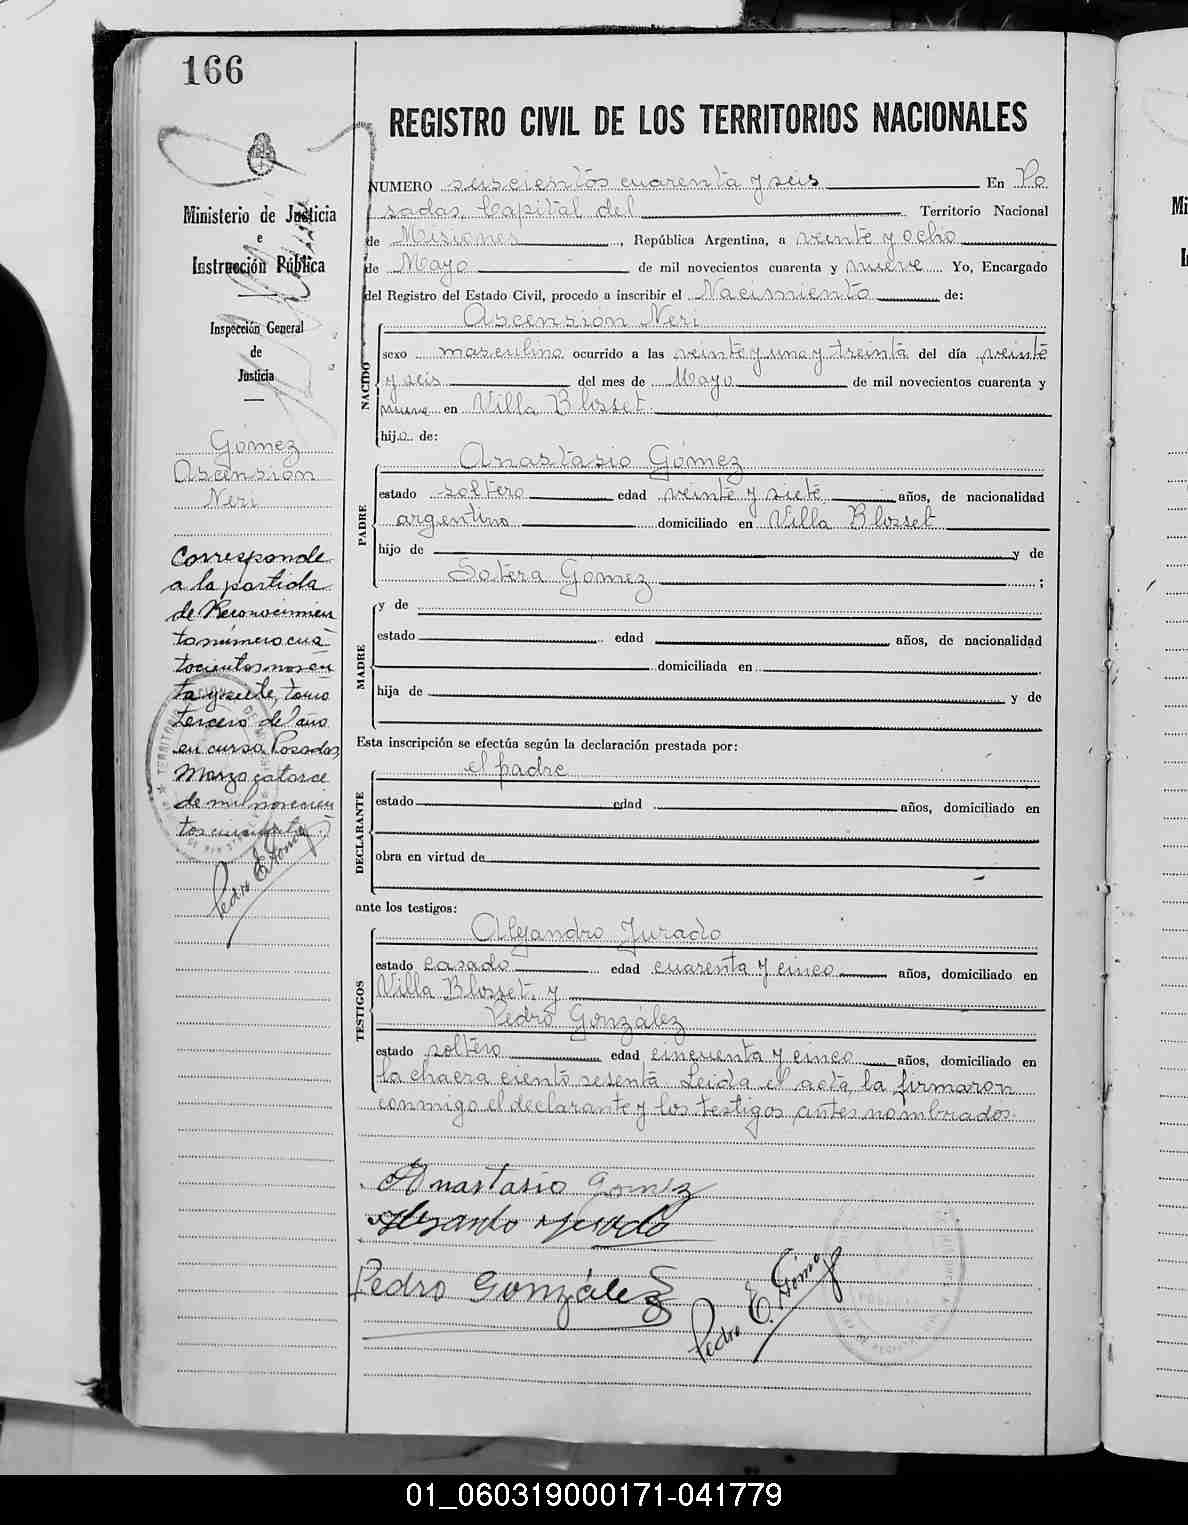 166
REGISTRO CIVIL DE LOS TERRITORIOS NACIONALES
Ministerio de Justicia
e
Instrucción Pública
Inspección General
de
Justicia
Gómez
Ascensión
Neri
Corresponde
a la partida
de Reconocimien
to número cua
trocientos noven
ta y siete, tomo
tercero del año
en curso Posadas,
Marzo catorce
de mil novecien
tos cincuenta.
NUMERO seiscientos cuarenta y seis En Po
sadas Capital del Territorio Nacional
de Misiones, República Argentina, a veinte y ocho
de Mayo de mil novecientos cuarenta y nueve Yo, Encargado
del Registro del Estado Civil, procedo a inscribir el Nacimiento de:
NACIDO
Ascensión Neri
sexo masculino ocurrido a las veinte y uno y treinta del día veinte
y seis del mes de Mayo de mil novecientos cuarenta y
nueve en Villa Blosset
hijo de:
PADRE
Anastasio Gómez
estado soltero edad veinte y siete años, de nacionalidad
argentino domiciliado en Villa Blosset
hijo de y de
Sotera Gómez ;
MADRE
y de
estado edad años, de nacionalidad
domiciliada en
hija de y de
Esta inscripción se efectúa según la declaración prestada por:
DECLARANTE
el padre
estado edad años, domiciliado en
obra en virtud de
ante los testigos:
TESTIGOS
Alejandro Jurado
estado casado edad cuarenta y cinco años, domiciliado en
Villa Blosset, y
Pedro González
estado soltero edad cincuenta y cinco años, domiciliado en
la chacra ciento sesenta Leida el acta, la firmaron
conmigo el declarante y los testigos antes nombrados.
Anastasio Gomez
Pedro González
Pedro E.
01_060319000171-041779